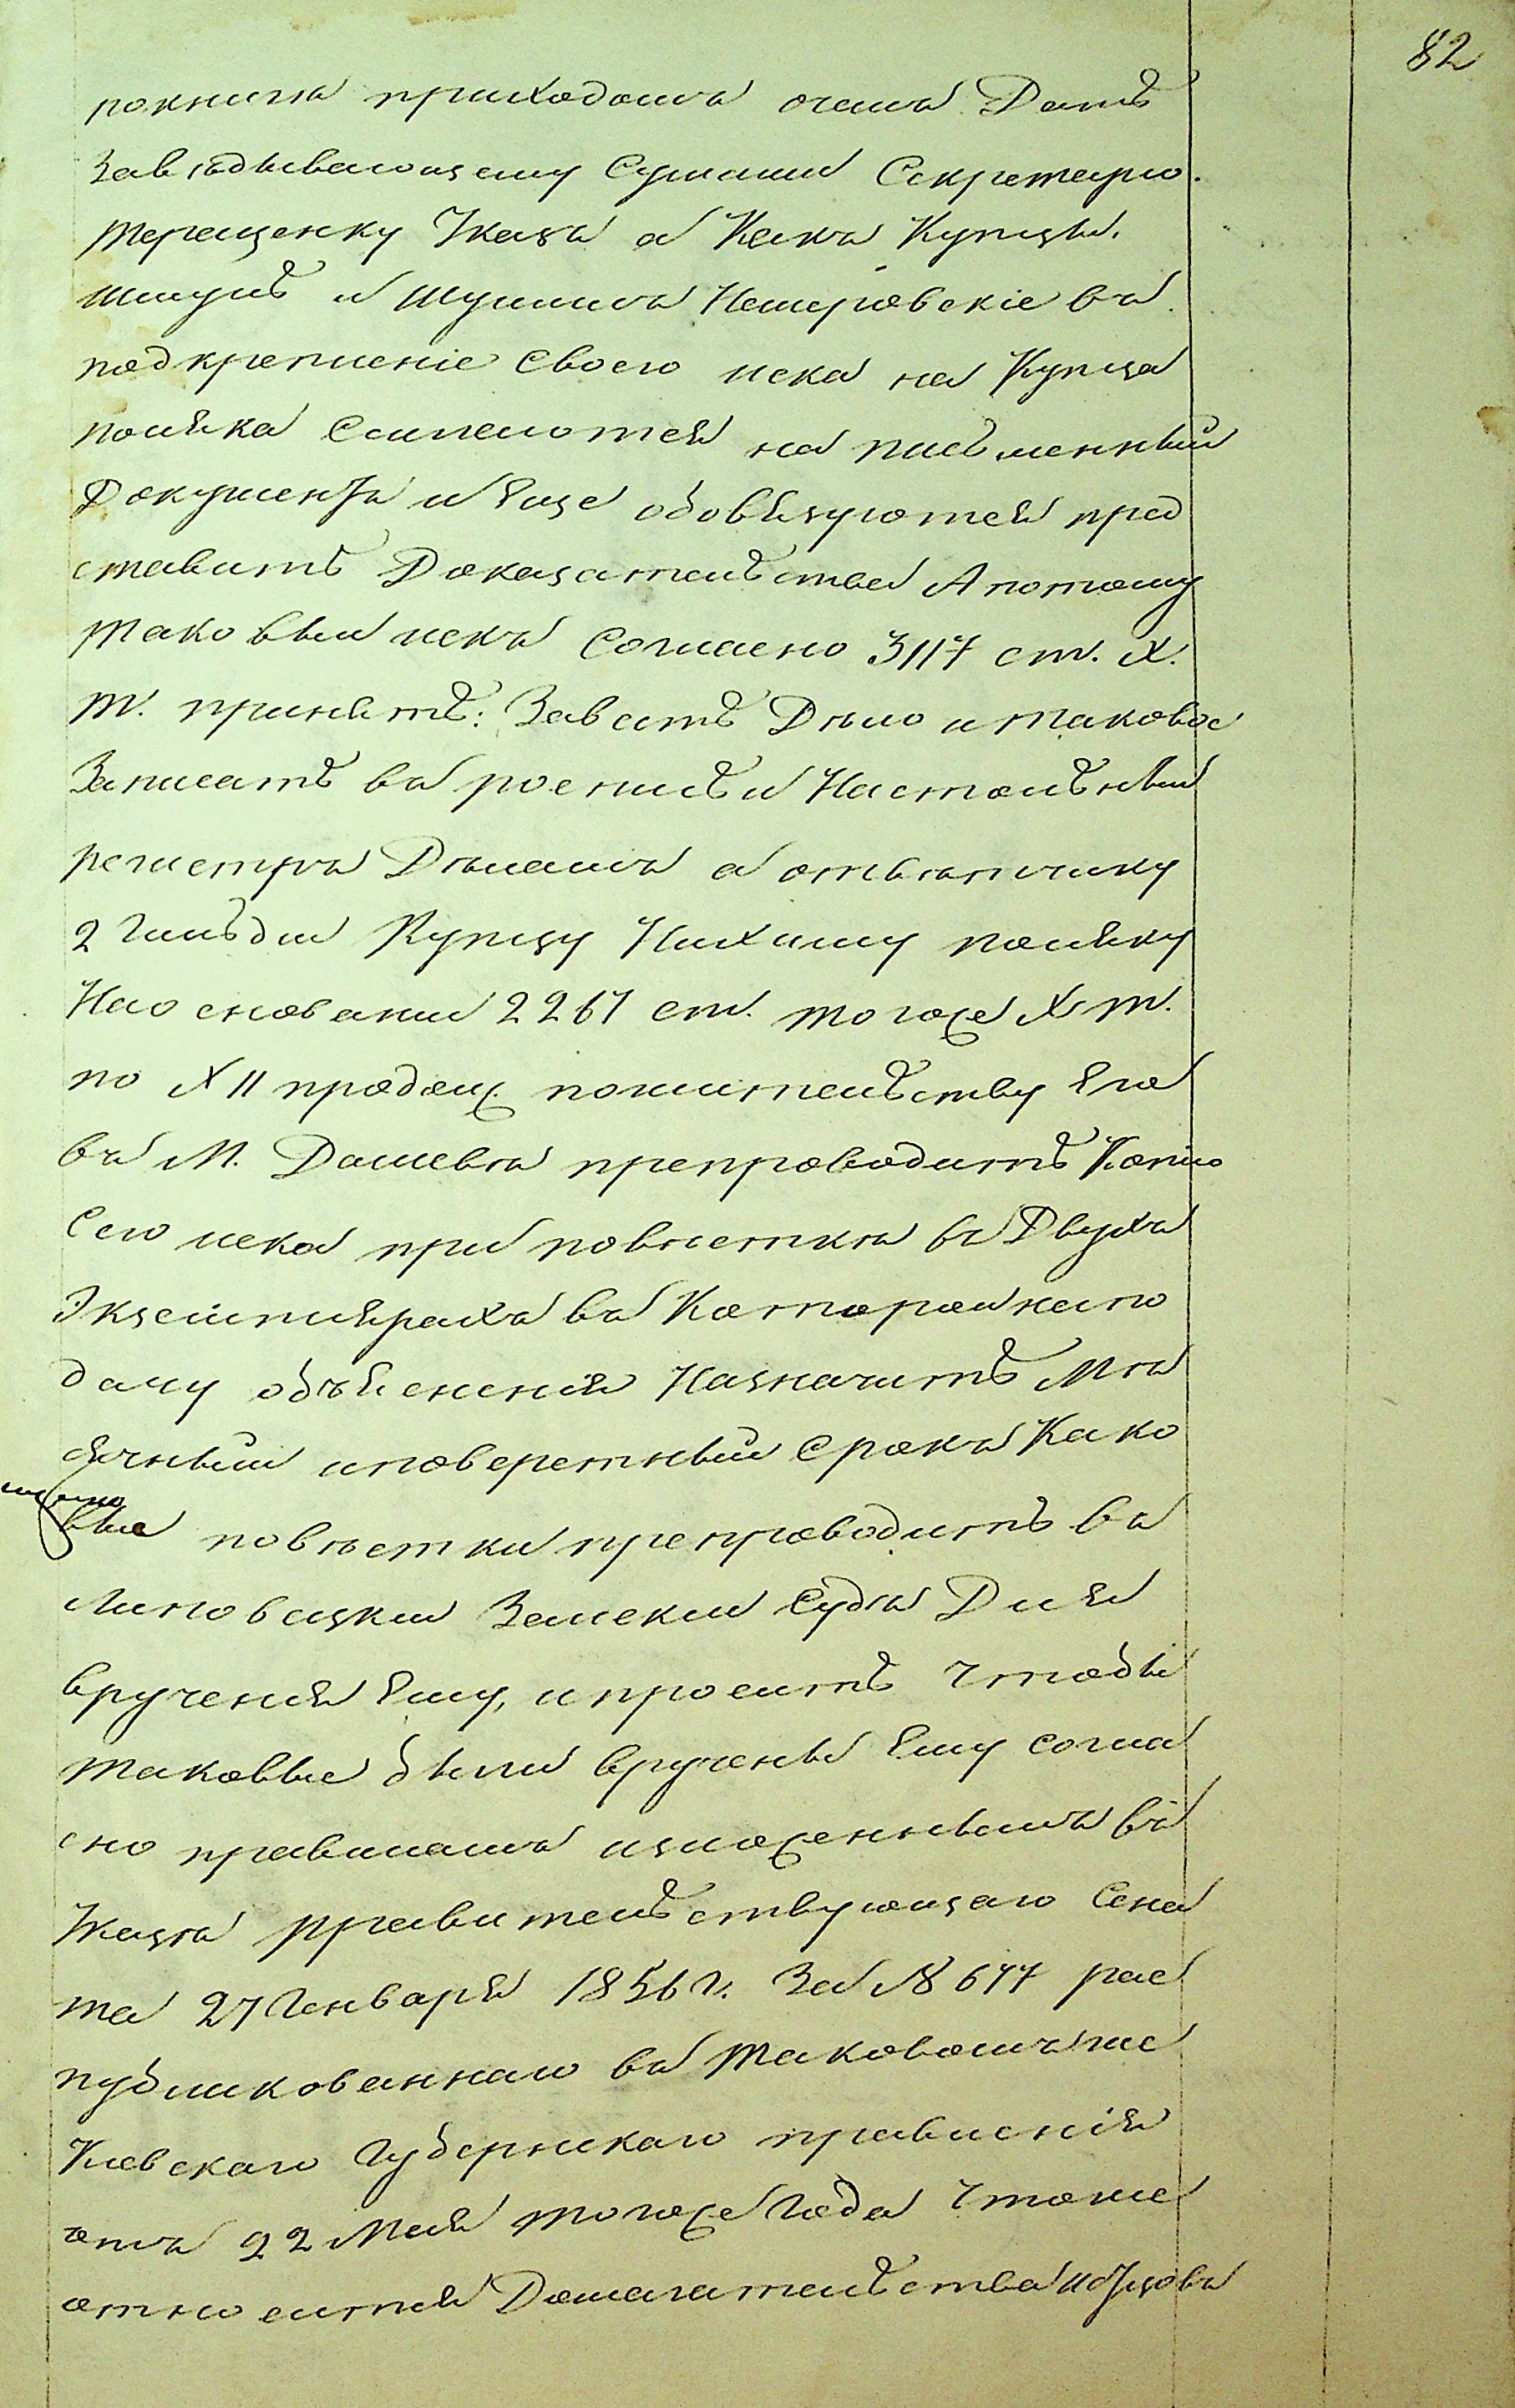 82
рокнига приходомъ очемъ Дать
Завѣдывающему Сумами Секретарю
терещенку Указъ а Какъ Купцы
Шмуль и Шулимъ Немировскіе въ
подкрепленіе Своего иска на Купца
поляка Сылаются на письменный
Документъ и Еще обовязуются пред
ставить Доказательства А потому
таковый искъ Согласно 3117 ст. X.
т. принять: Завѣсть Дѣло и таковое
Записать въ роспись и Настольный
регистръ Дѣламъ а ответчику
2 Гильдіи Купцу Нихиму поляку
На основаніи 2261 ст. тогоже X т.
по XII продолж. пожительству Его
въ М. Дашевъ препроводить Копію
Сего иска при повѣсткѣ въ Двухъ
Экземплярахъ въ Которой на по
дачу объясненія Назначить Мѣ
сячный и поверстный Срокъ Како
вые повѣстки препроводить въ
Липовецкій Земскій Судъ Для
врученія Ему, и просить Чтобы
таковые были вручены Ему согла
сно правиламъ изложеннымъ въ
Указѣ Правительствующаго Сена
та 27 Генваря 1856 г. За № 677 рас
публикованнаго въ таковомъ же
Киевскаго Губернскаго правленія
отъ 22 Мая тогоже Года Чтоже
относится Домагательства Истцовъ